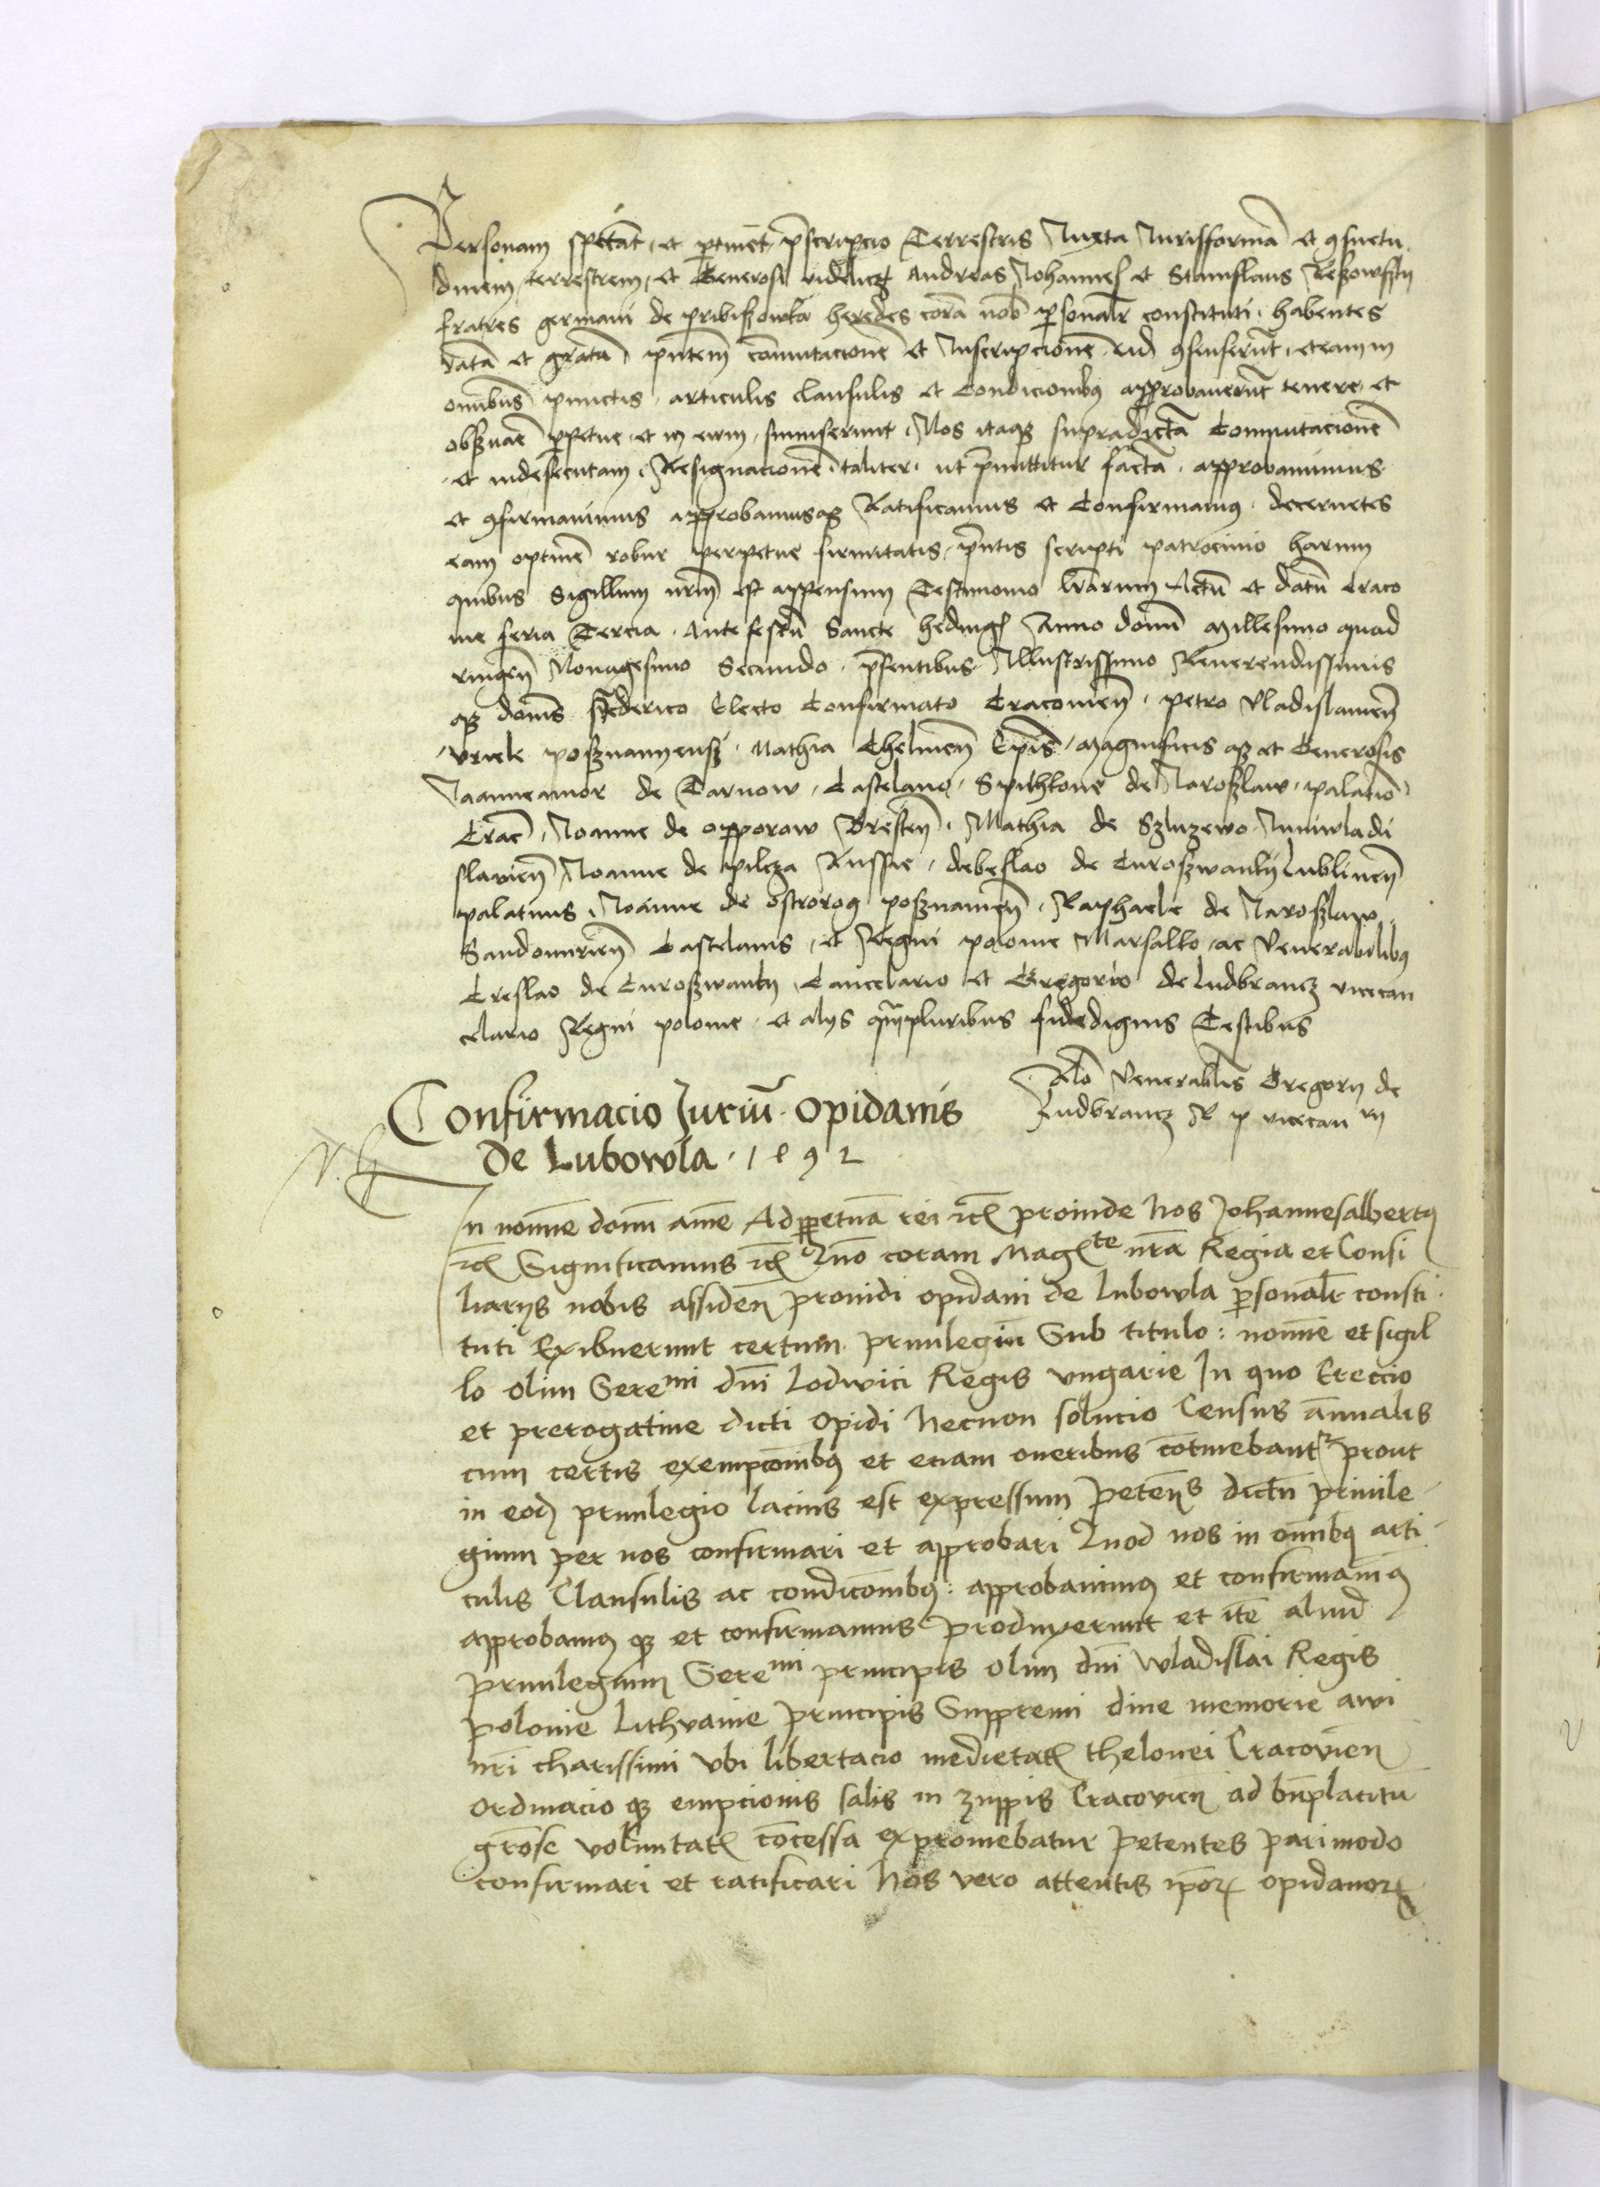 Personam spectāt et ꝑtinēt p̄scripcio Terrestris Juxta Jurisformā et ɔsuetu
dinem terrestrem, et Generosi videlicꝫ Andreas Johannes et Stanislaus Reszowsztÿ
fratres germani de pribiszowka heredes corā nob ꝑsonalr̄ constituti habentes
datā et gratā p̄ntem̄ comutacionē et Inscripcionē eid ɔsenserūt, et eam in
om̄ibus punctis articulis clausulis et Condicionibꝰ approbauerūt tenere et
obẜuare ꝑpetue et in ewm, Nos itaqꝫ supradictā Comutacionē
et indesecutam Resignacionē taliter ut p̄mittitur factā approbauimus
et ɔfirmauimus approbamusqꝫ Ratificamus et Confirmamꝰ decernētes
eam optinē robur perpetue firmitatis, p̄ntis scripti patrocinio harum
quibus Sigillum nrm̄ est appensum Testimonio lrārum Actū et datū Craco
uie feria Tercia Ante festū Sancte hedwigꝭ Anno domī Millesimo quad
ringen̄ Nonagesimo Secundo p̄sentibus Illustrissimo Reuerendissimis
qꝫ domīs ffederico Electo Confirmato Cracouien̄, petro Vladislauien̄
Vriele poszananensz, Mathia Chelmen̄ Ep̄is, Magnificis qꝫ et Generosis
Jaanne amor de Tarnow Castelano, Spithkone de Jaroszlaw, palatīo
Crac̄, Joanne de opporow Bresten̄, Mathia de Szluzewo Juniwladi
slauien̄ Joanne de pilcza Russie, debeslao de Curoszwantÿ lublinen̄
palatinis, Joanne de ostrorog poszananien̄, Raphaele de Jaroszlaw
Sandomirien̄ Castelanis, et Regni polonie Marsalko, ac Venerabilibꝰ
Creslao de Curoszwantÿ Cancelario et Gregorio de ludbrancz vicecan
celario Regni polonie, et alÿs qm̄pluribus fidedignis Testibus
Rlo Venerabilis Gregorÿ de
Ludbrancz R p vicecan rÿ
Confirmacio Juriū opidanis
de Lubowla 1492
In nomine domī amē Ad ꝑpetuā rei ⁊cꝭ proinde Nos Johannesalbertꝰ
⁊cꝭ Significamus ⁊cꝭ Quō coram Magꝭte nrā Regia et Consi
liarÿs nobis assiden̄ prouidi opidani de lubowla ꝑsonalr̄ consti
tuti Exibuerunt certum priuilegiū Sub titulo: nomīe et sigil
lo olim Sereᵐⁱ dn̄i Lodwici Regis vngarie In quo Ereccio
et prerogatiue dicti opidi Necnon solucio Census annalis
cum certis exempcōnibꝰ et eciam oneribus cōtinebantᷣ prout
in eodꝫ priuilegio lacius est expressum petēn̄s dictū priuile
gium per nos confirmari et approbari Quod nos in om̄ibꝰ arti
culis Clausulis ac condicōnibꝰ: approbauimꝰ et confirmauimꝰ
approbamꝰ qꝫ et confirmamus produxerunt et itē aliud
priuilegium Sereᵐⁱ principis olim dn̄i Wladislai Regis
polonie Lithvanie principis Suppremi diue memorie awi
nr̄i charissimi Vbi libertacio medietatꝭ thelonei Cracovien̄
Ordinacio qꝫ empcionis salis in zuppis Cracovien̄ ad bn̄placitū
grōse voluntatꝭ cōcessa expromebatur petentes pari modo
confirmari et ratificari Nos vero attentis ip̄oꝝ opidanoꝝ